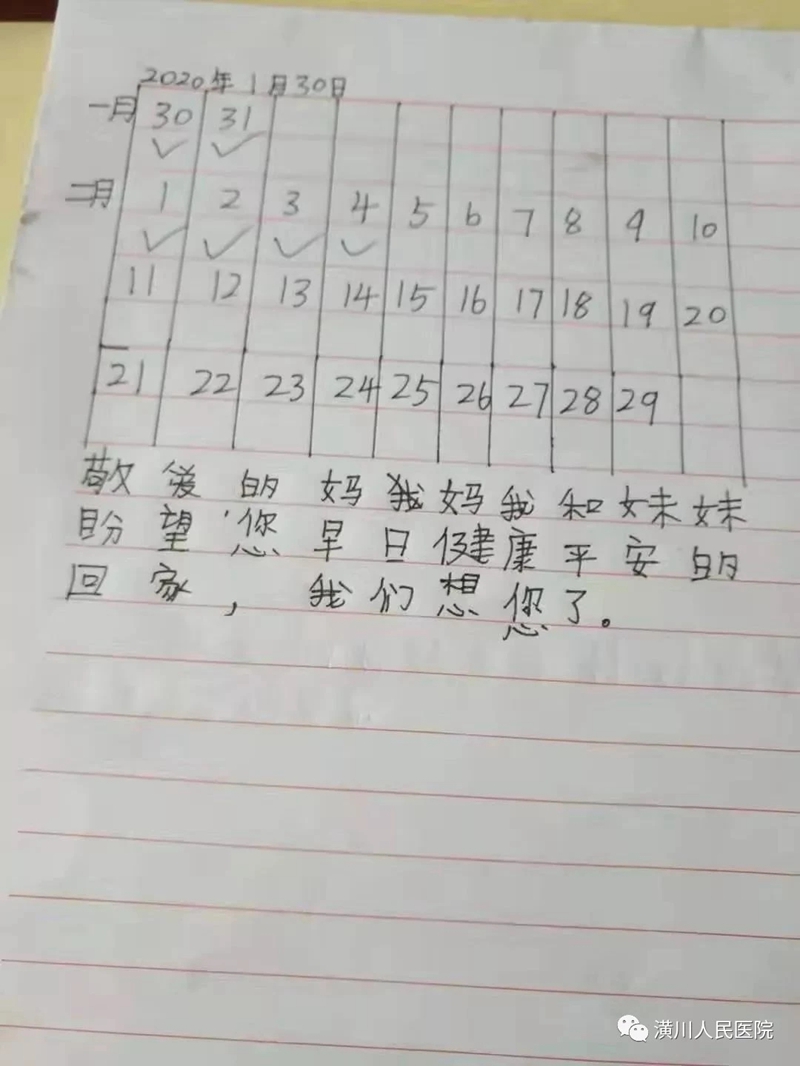 2020年1月30日
一月 30 31
二月 1 2 3 4 5 6 7 8 9 10
11 12 13 14 15 16 17 18 19 20
21 22 23 24 25 26 27 28 29
敬爱的妈我妈我和妹妹
盼望您早日健康平安的
回家，我们想您了。
潢川人民医院